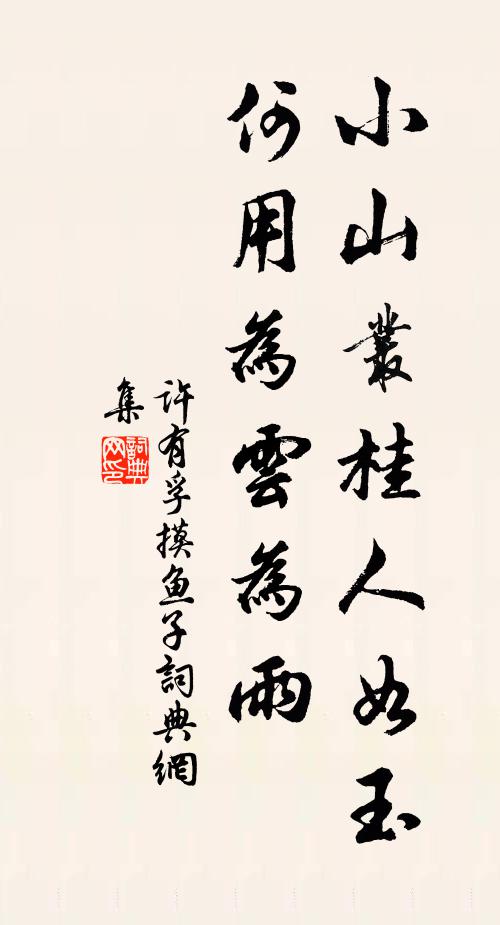 小山叢桂人如玉
何用為雲為雨
許有孚摸魚子詞典網
集
詞典網印